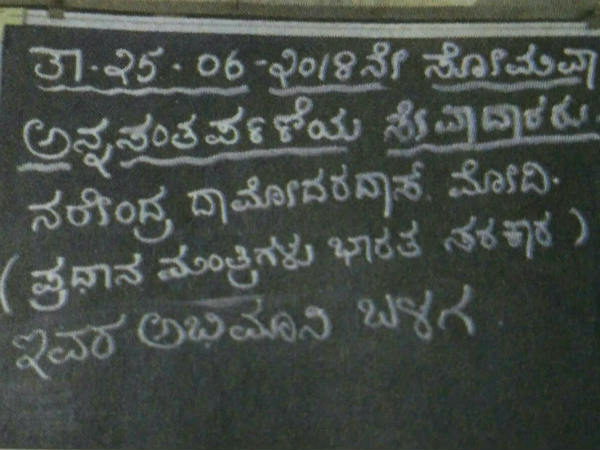 ತಾ. ೨೫ . ೦6 - ೨೦1೪ನೇ ಸೋಮವಾ
ಅನ್ನಸಂತರ್ಪಣೆಯ ಸೇವಾದಾರರು.
ನರೇಂದ್ರ ದಾಮೋದರದಾಸ್. ಮೋದಿ.
( ಪ್ರಧಾನ ಮಂತ್ರಿಗಳು ಭಾರತ ಸರಕಾರ )
ಇವರ ಅಭಿಮಾನಿ ಬಳಗ